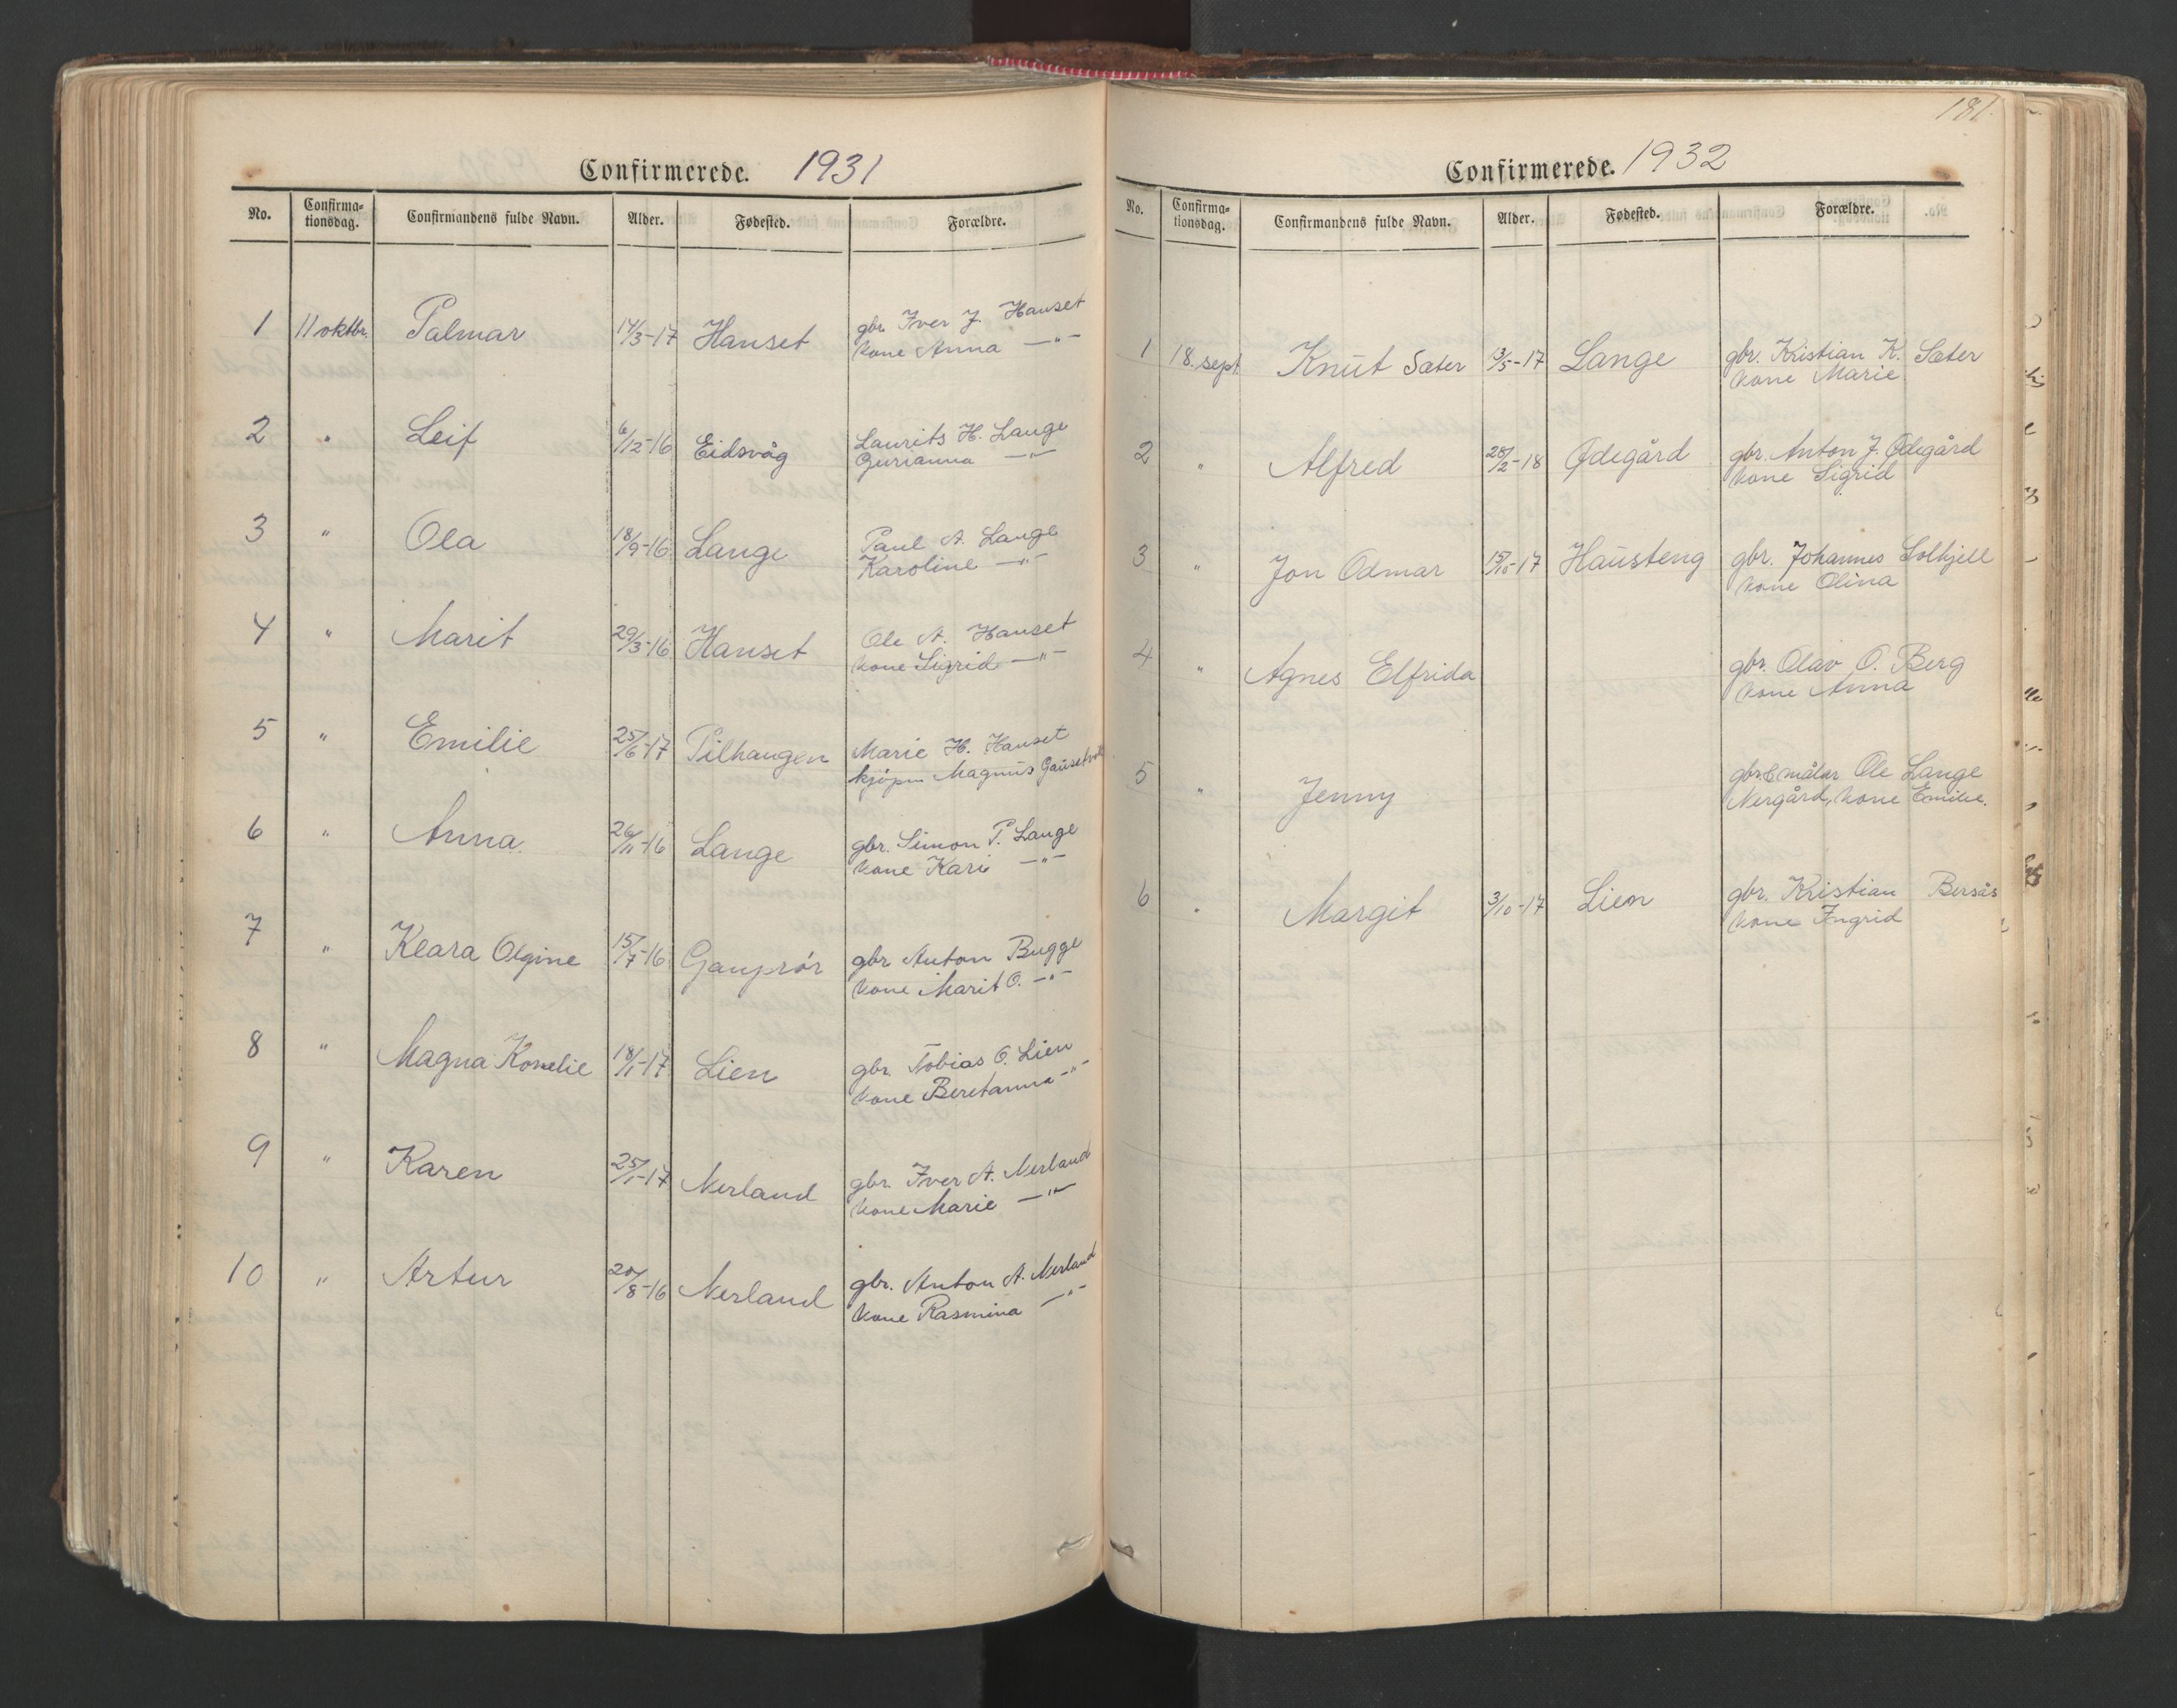 Confirmerede. 1931
No. Confirma-tionsdag. Confirmandens fulde Navn. Alder. Fødested. Forældre.
1 11 oktbr. Palmar 14/3-17 Hauset gbr Iver J. Hauset
kone Anna —"—
2 " Leif 6/12-16 Eidsvåg Laurits H. Lange
Gurianna —"—
3 " Ola 18/9-16 Lange Paul A. Lange
Karoline —"—
4 " Marit 29/3-16 Hauset Ole A. Hauset
kone Sigrid —"—
5 " Emilie 25/6-17 Pilhaugen Marie H. Hauset
kjøpm Magnus
6 " Anna 26/11-16 Lange gbr. Simon P. Lange
kone Kari —"—
7 " Klara Olgine 15/7-16 gbr Anton Bugge
kone Marit O. —"—
8 " Magna Kornelie 18/1-17 Lien gbr. Tobias O. Lien
kone Beretanna —"—
9 " Karen 25/1-17 Nerland gbr. Iver A. Nerland
kone Marie —"—
10 " Artur 20/8-16 Nerland gbr. Anton A. Nerland
kone Rasmina —"—
181.
Confirmerede. 1932
No. Confirma-tionsdag. Confirmandens fulde Navn. Alder. Fødested. Forældre.
1 18. sept. Knut Sæter 13/5-17 Lange gbr. Kristian K. Sæter
kone Marie
2 " Alfred 28/2-18 Ødegård gbr. Anton J. Ødegård
kone Sigrid
3 " Jon Odmar 15/10-17 Hausteng gbr. Johannes Solhjell
kone Olina
4 " Agnes Elfrida gbr. Olav O. Berg
kone Anna
5 " Jenny gbr & målar Ole Lange
Nergård, kone Emilie.
6 " Margit 3/10-17 Lien gbr. Kristian Bersås
kone Ingrid